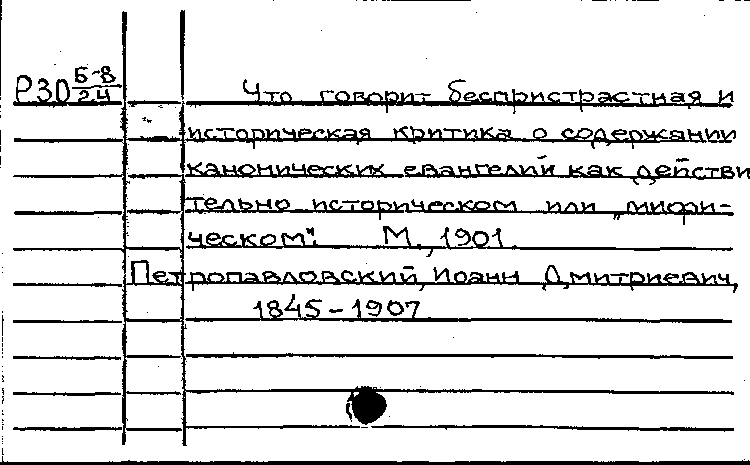 Р30 Б-8/24 Что говорит беспристрастная и
историческая критика о содержании
канонических евангелий как действи
тельно историческом или „мифи-
ческом". М., 1901.
Петропавловский, Иоанн Дмитриевич,
1845-1907